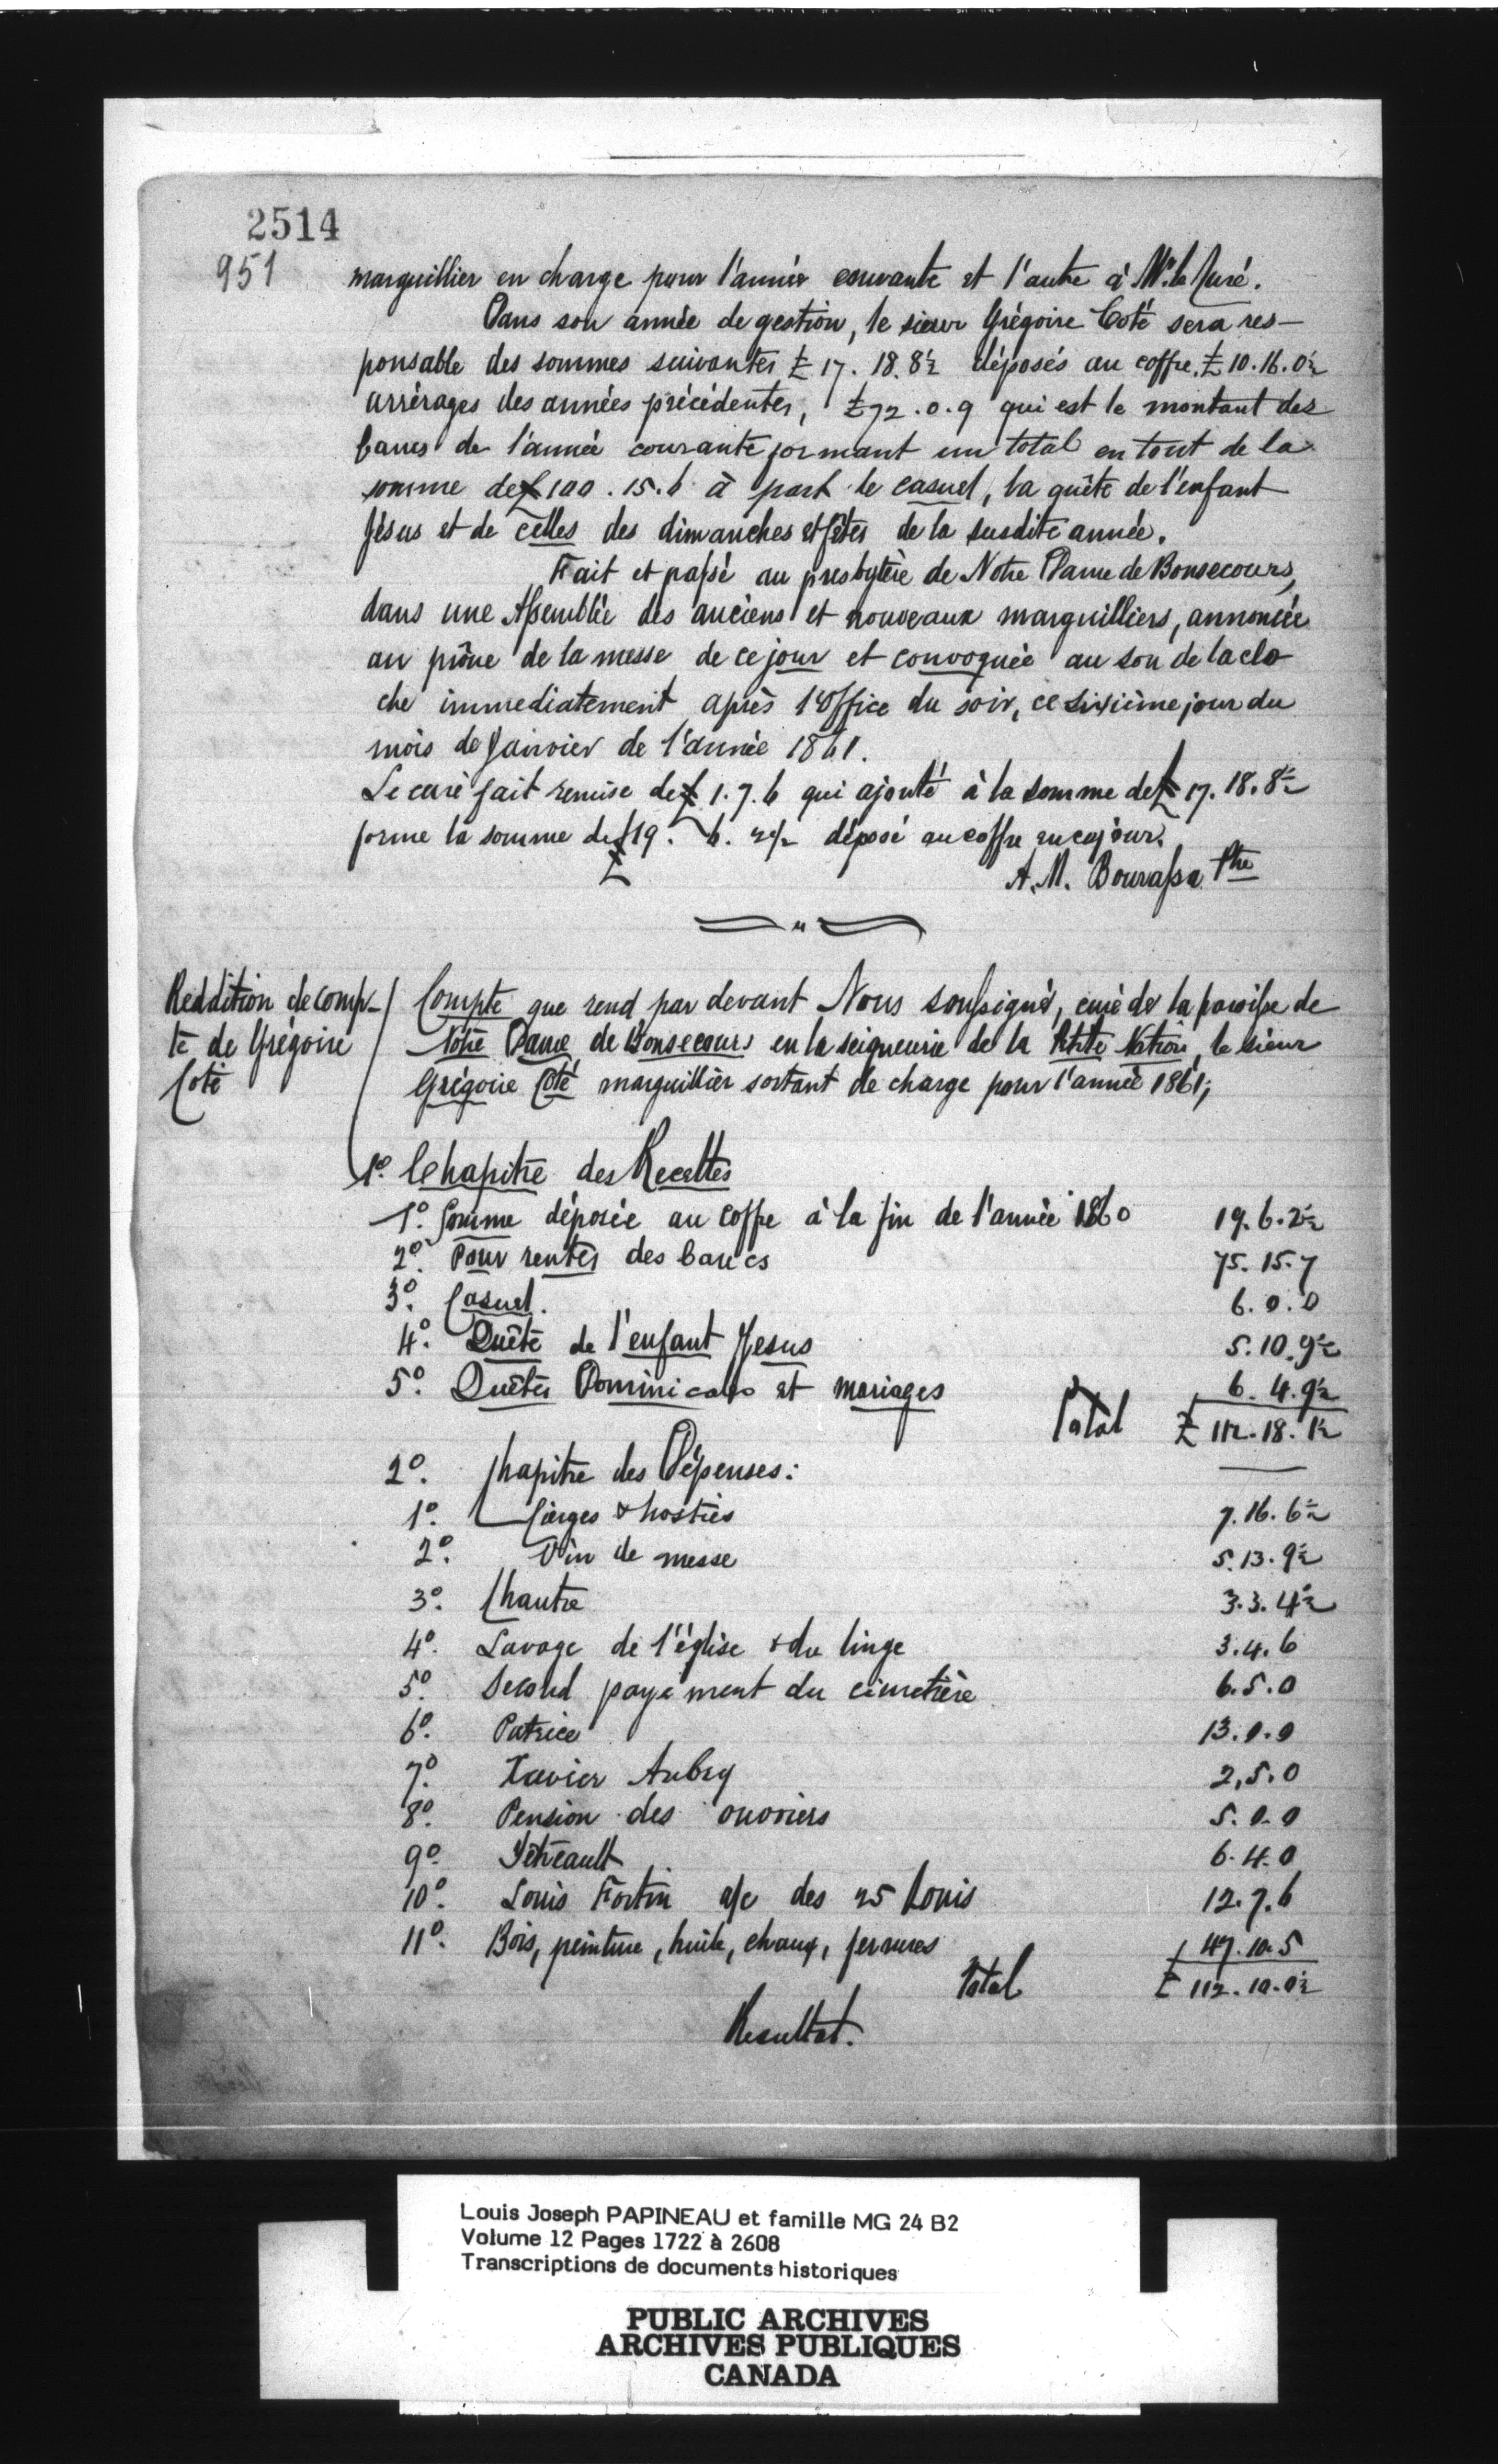 2514
951
marguillier en charge pour l'année courante et l'autre à Mr. le Curé.
Dans son année de gestion, le sieur Grégoire Coté sera res-
ponsable des sommes suivantes £ 17. 18. 8½ déposés au coffre, £ 10. 16. 0½
arrérages des années précédentes, £ 72. 0. 9 qui est le montant des
bancs de l'année courante formant un total en tout de la
somme de £ 100. 15. 6 à part le casuel, la quête de l'enfant
Jésus et de celles des dimanches et fêtes de la susdite année.
Fait et passé au presbytère de Notre Dame de Bonsecours,
dans une Assemblée des anciens et nouveaux marguilliers, annoncée
au prône de la messe de ce jour et convoquée au son de la clo
che immediatement après l'Office du soir, ce sixième jour du
mois de Janvier de l'année 1861.
Le curé fait remise de £ 1. 7. 6 qui ajouté à la somme de £ 17. 18. 8½
forme la somme de £ 19. 6. 2½ déposé au coffre en ce jour.
A. M. Bourassa Ptre
Reddition de comp-
te de Grégoire
Coté
Compte que rend par devant Nous soussigné, curé de la paroisse de
Notre Dame de Bonsecours en la seigneurie de la Petite Nation, le sieur
Grégoire Coté marguillier sortant de charge pour l'année 1861;
1º. Chapitre des Recettes
1º. Somme déposée au coffre à la fin de l'année 1860 19. 6. 2½
2º. Pour rentes des bancs 75. 15. 7
3º. Casuel. 6. 0. 0
4º. Quête de l'enfant Jesus 5. 10. 9½
5º. Quêtes Dominicales et mariages 6. 4. 9½
Total £ 112. 18. 1½
2º. Chapitre des Dépenses:
1º. Cierges & hosties 7. 16. 6½
2º. Vin de messe 5. 13. 9½
3º. Chantre 3. 3. 4½
4º. Lavage de l'église & du linge 3. 4. 6
5º. Second payement du cimetière 6. 5. 0
6º. Patrice 13. 0. 0
7º. Xavier Aubry 2. 5. 0
8º. Pension des ouvriers 5. 0. 0
9º. Tétreault 6. 4. 0
10º. Louis Fortin a/c des 25 Louis 12. 7. 6
11º. Bois, peinture, huile, chaux, ferrures 47. 10. 5
Total £ 112. 10. 0½
Resultat.
Louis Joseph PAPINEAU et famille MG 24 B2
Volume 12 Pages 1722 à 2608
Transcriptions de documents historiques
PUBLIC ARCHIVES
ARCHIVES PUBLIQUES
CANADA